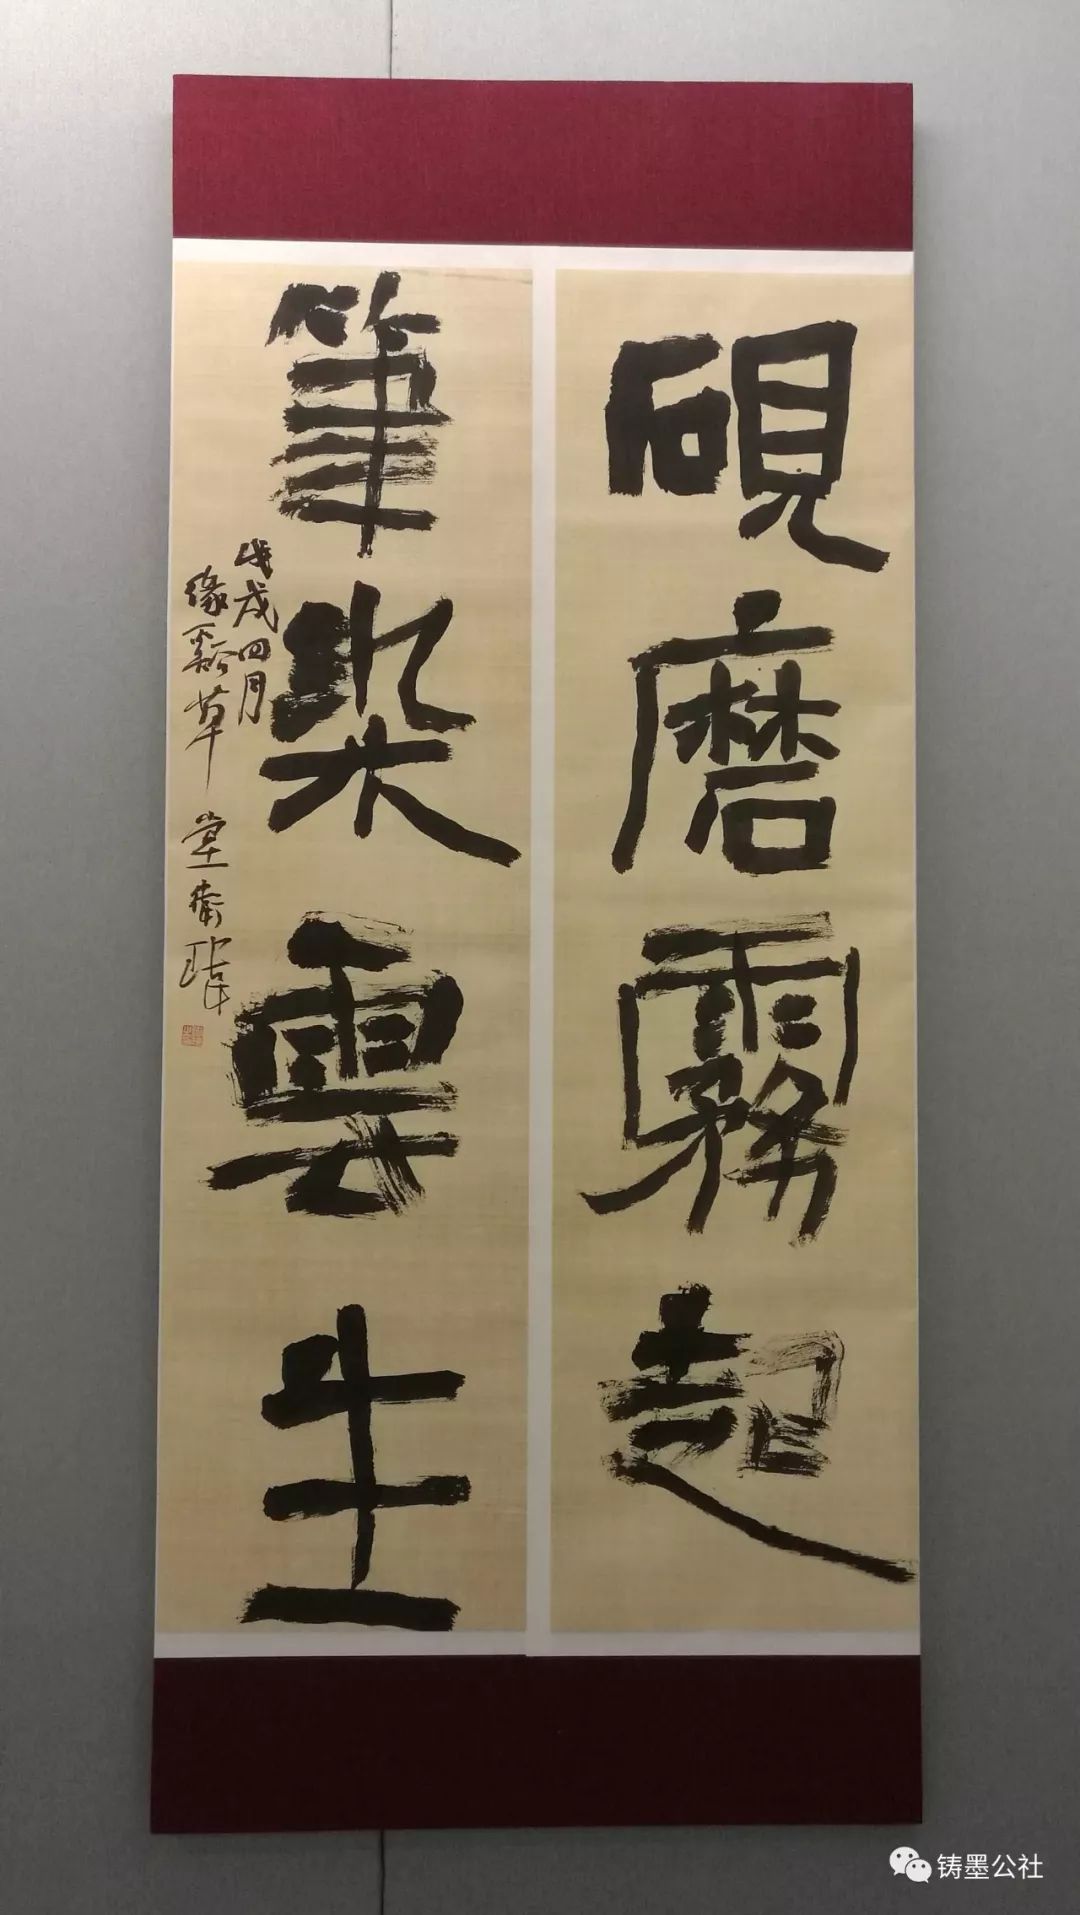 硯磨霧起
筆染雲生
戊戌四月
緣谿草堂
铸墨公社